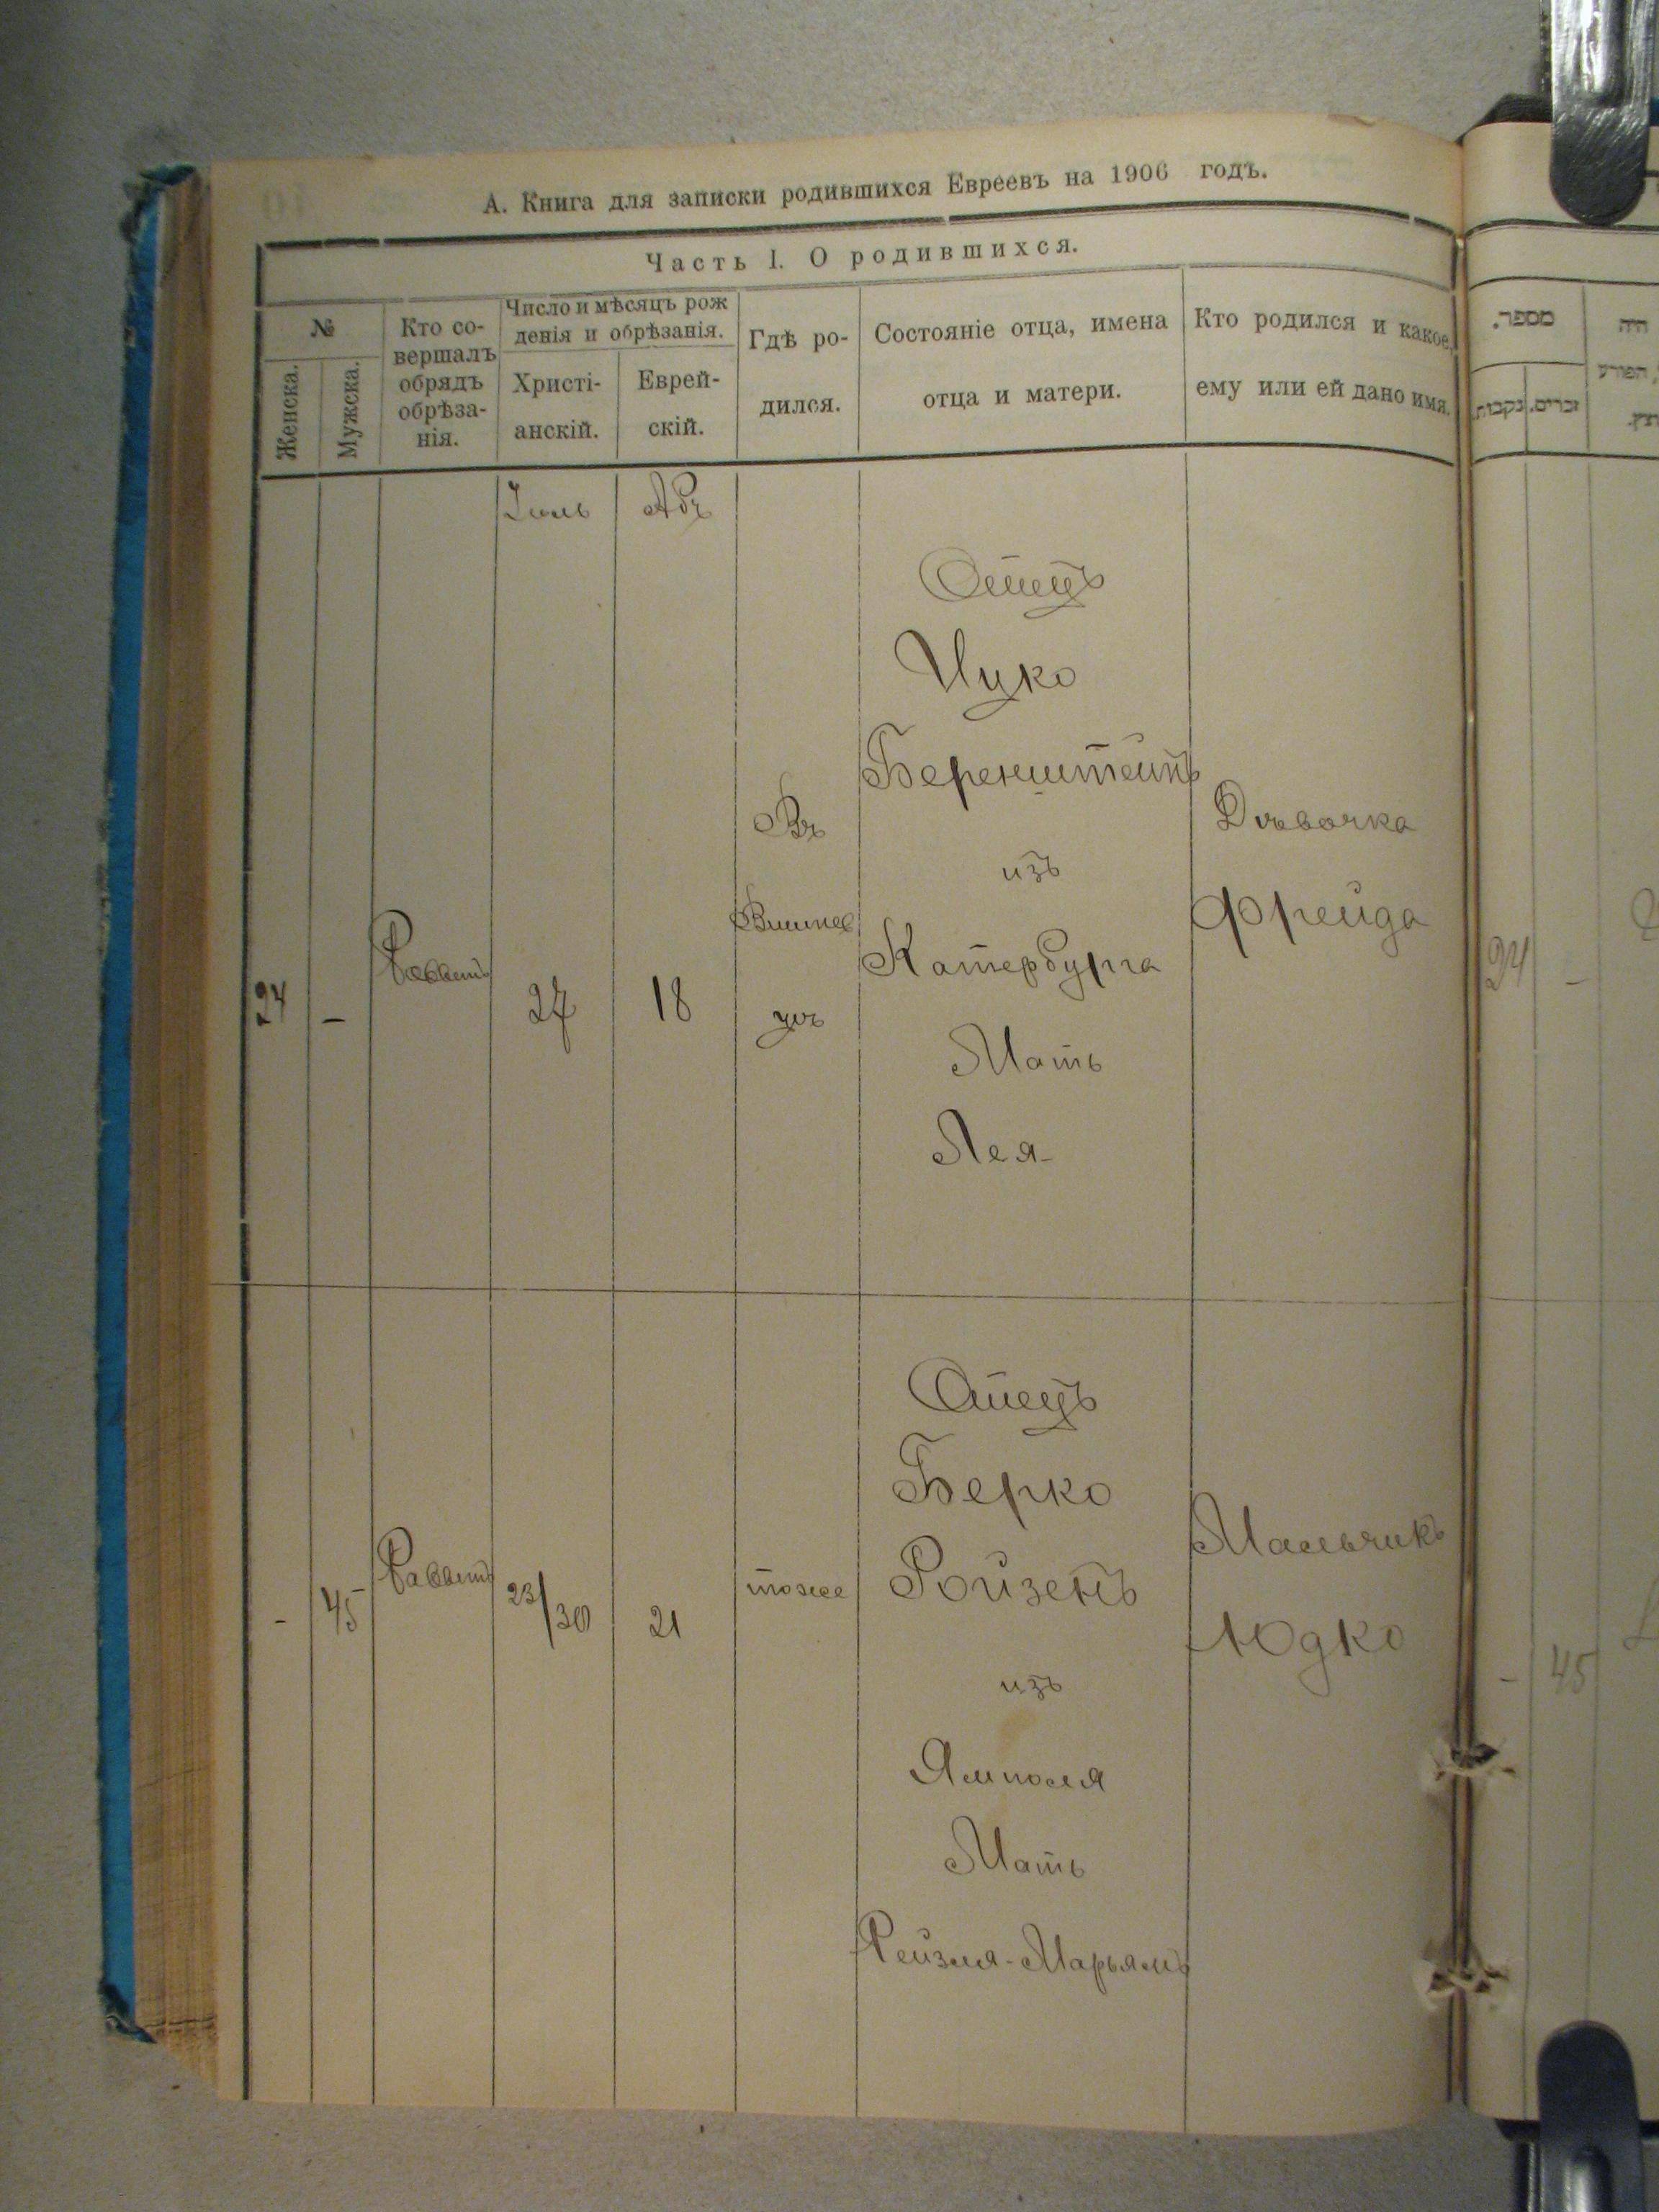 А. Книга для записки родившихся Евреевъ на 1906 годъ.
Часть I. О родившихся.
№
Женска.
Мужска.
Кто со-
вершалъ
обрядъ
обрѣза-
нія.
Число и мѣсяцъ рож
денія и обрѣзанія.
Христі-
анскій.
Еврей-
скій.
Гдѣ ро-
дился.
Состояніе отца, имена
отца и матери.
Кто родился и какое
ему или ей дано имя.
מספר.
נקבות.
זכרים.
היה
Іюль
Абъ
24
-
Раввинъ
27
18
Въ
Вишнев
цѣ
Отецъ
Ицко
Беренштейнъ
изъ
Катербурга
Мать
Лея
Дѣвочка
Фрейда
24
-
-
45
Раввинъ
23/30
21
тоже
Отецъ
Берко
Ройзенъ
изъ
Ямполя
Мать
Рейзля-Марьямъ
Мальчикъ
Юдко
-
45